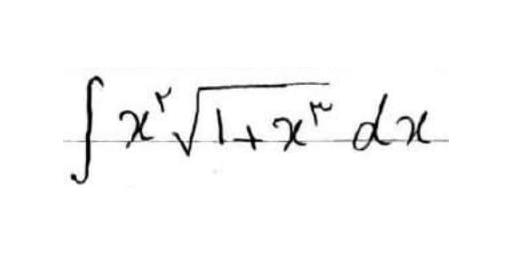 ∫ x^۲ √(1+x^۳) dx